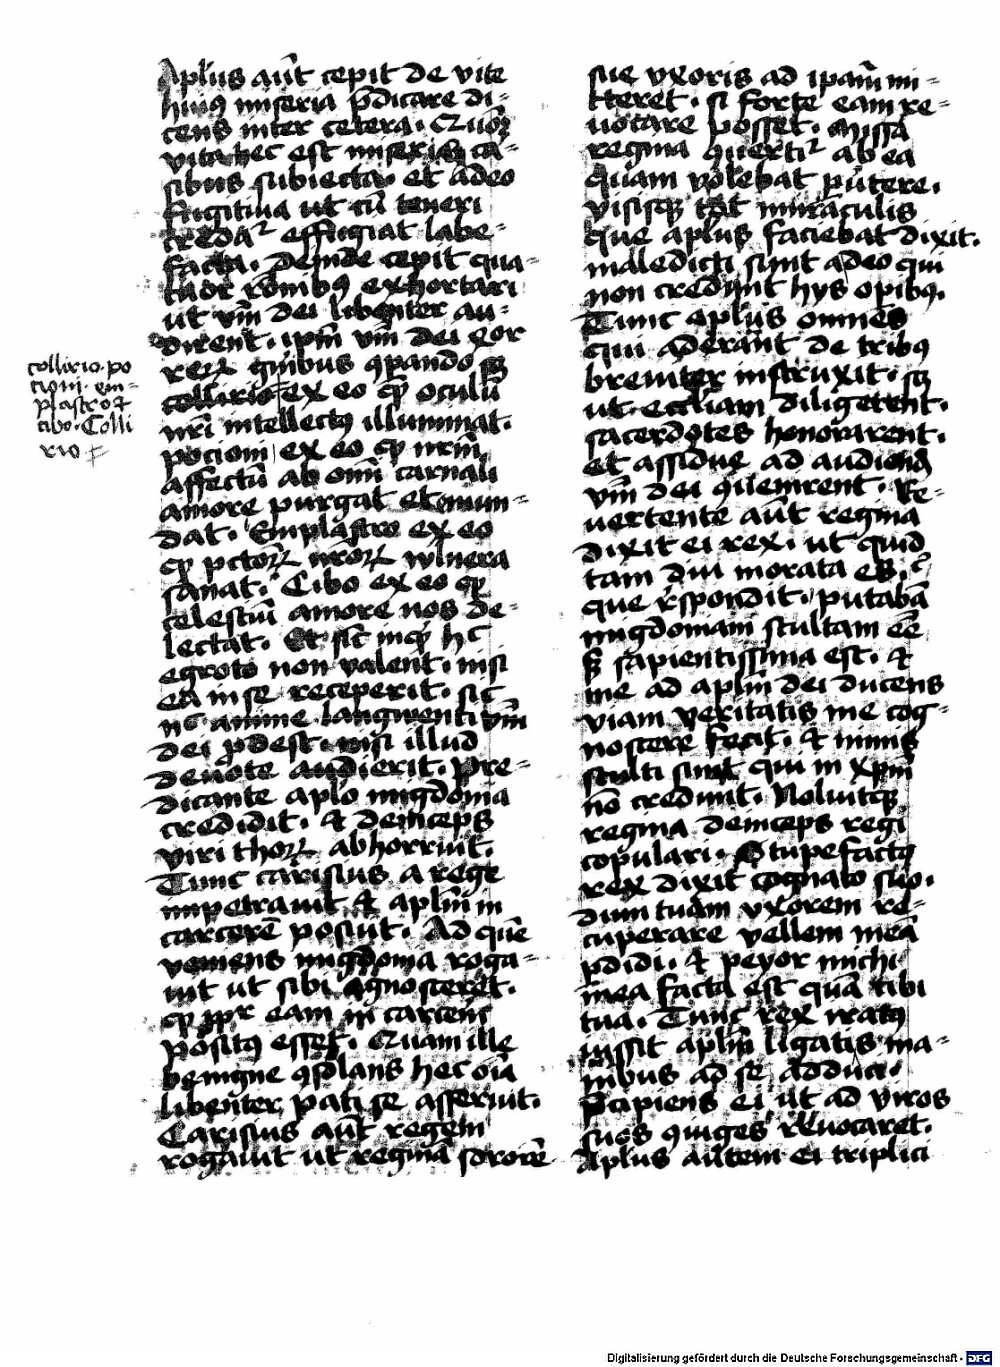 Aplus aūt cepit de vite
huiꝯ miseria p̄dicare di-
cens inter cetera. Quoꝝ
vita hec est miseriis ca-
sibus subiecta. et adeo
fugitiua ut cū teneri
credat᷑ effugiat labe-
facta. Deinde cepit qua-
tuor rōnibꝯ exhortari
ut v̄m dei libenter au-
dirent. ip̄m v̄m dei cor
reꝝ quibus ꝯparando sꝫ
collirio ex eo ꝙ oculū
nr̄i intellectꝯ illuminat.
pocioni ex eo ꝙ nr̄m
affectū ab om̄i carnali
amore purgat et mun-
dat. Emplastro ex eo
ꝙ pctoꝝ nr̄oꝝ wlnera
sanat. Cibo ex eo ꝙ
celestiū amore nos de-
lectat. Et sic̄ inqͥ hͨ
egroto non valent. nisi
ea in se receperit. sic
nͨ anime langwenti v̄m
dei p̄dest. nisi illud
deuote audierit. Pre-
dicante aplo migdonia
credidit. & deinceps
viri thoꝝ abhorruit.
Tunc carisius a rege
impetrauit & aplm̄ in
carcerē posuit. Ad quē
veniens migdonia roga-
uit ut sibi ignosceret.
ꝙ ppͬ eam in carcerē
positꝯ esset. Quam ille
benigne ꝯsolans hec oīa
libenter pati se asseruit.
Carisius aūt regem
rogauit ut reginā sororē
collirio. po
cioni. em-
plastro &
cibo. Colli
rio
sue vxoris ad ipam̄ mi-
tteret. si forte eam re-
uocare posset. Missa
regina ꝯuertit᷑ ab ea
quam volebat ꝑuertere.
visisqꝫ tāt miraculis
que aplus faciebat dixit.
maledicti sunt a deo qui
non credunt hys opibꝯ.
Tunc aplus omnes
qui aderant de tribꝯ
breuiter instruxit. sꝫ
ut eccliam diligerent.
sacerdotes honorarent.
et assidue ad audiendū
v̄m dei ꝯuenirent. Re-
uertente aūt regina
dixit ei rex. ut quid
tam diu morata es.
que rn̄spondit. putabā
migdoniam stultam eē
sꝫ sapientissima est. &
me ad aplm̄ dei ducens
viam veritatis me cog-
noscere fecit. & nimis
stulti sunt qui in xp̄m
nō credunt. Noluitqꝫ
regina deinceps regi
copulari. Stupefactꝯ
rex dixit cognato suo.
dum tuam vxorem re-
cuperare vellem meā
ꝑdidi. & peyor michi
mea facta est quā tibi
tua. Tunc rex iratꝯ
iussit aplm̄ ligatis ma-
nibus ad se adduci.
p̄cipiens ei ut ad viros
suos ꝯiuges reuocaret.
Aplus autem ei triplici
Digitalisierung gefördert durch die Deutsche Forschungsgemeinschaft - DFG